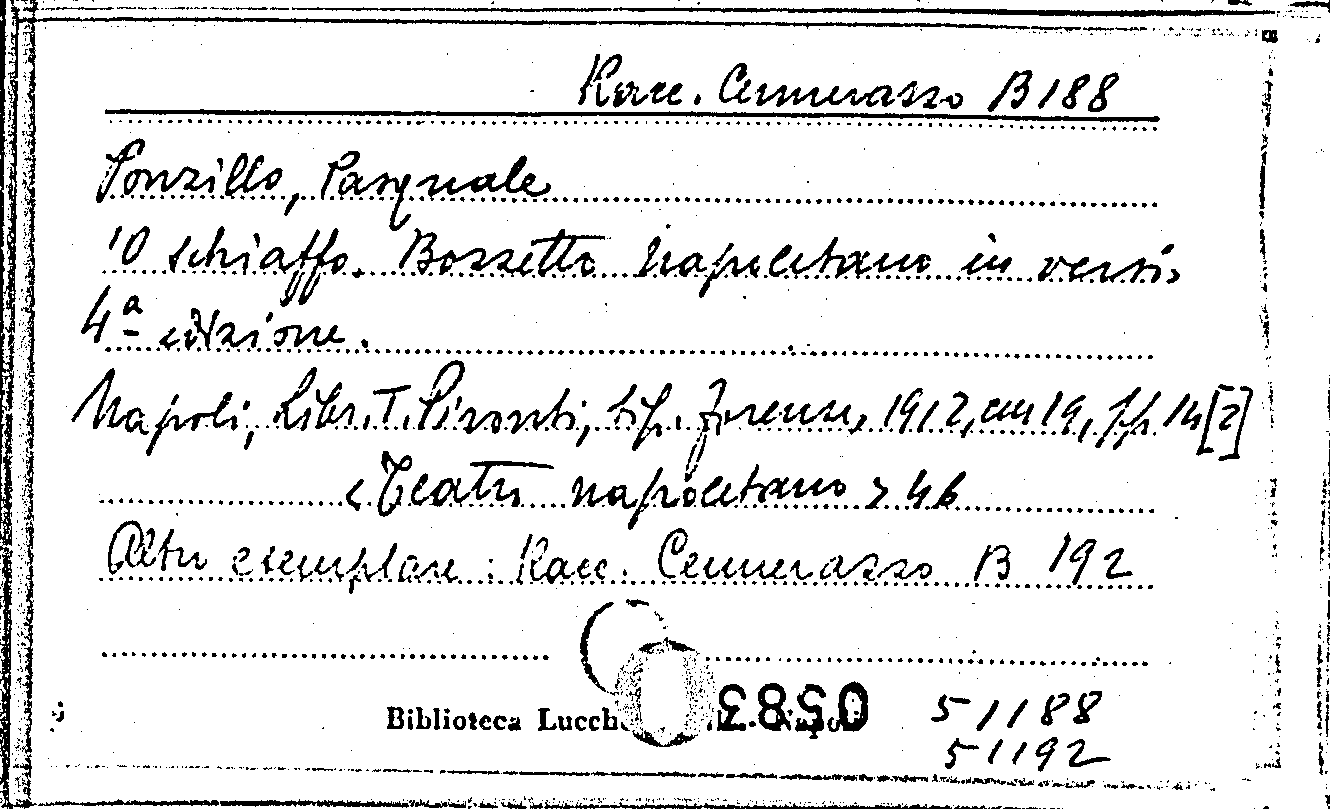 Racc. Cennerasso B 188
Ponzillo, Pasquale
'O schiaffo. Bozzetto napoletano in versi.
4ª edizione.
Napoli, Libr. T. Pironti, tip. forense, 1912, cm 19, pp. 14 [2]
<Teatro napoletano> 46
Altro esemplare: Racc. Cennerasso B 192
Biblioteca Lucch Napoli
0583
51188
51192